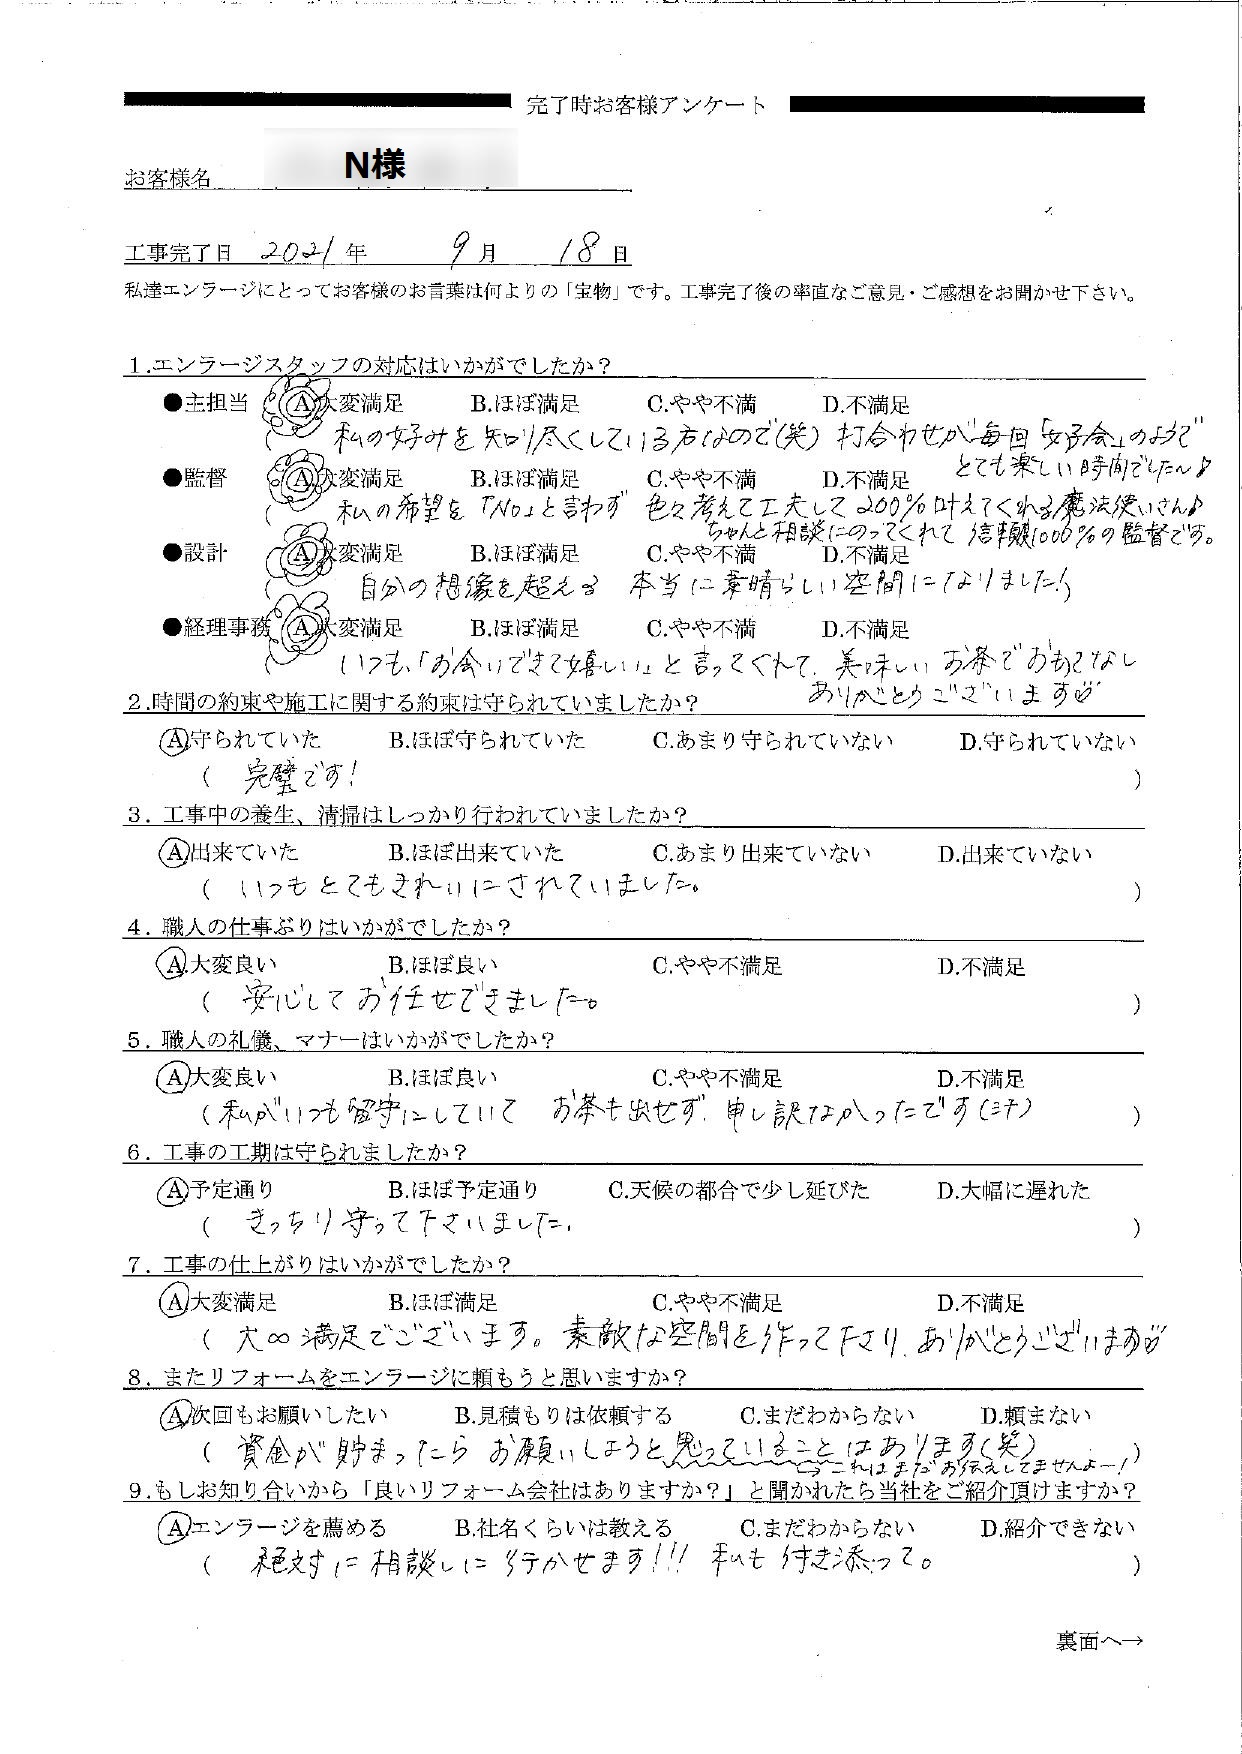 完了時お客様アンケート
お客様名 N様
工事完了日 2021年 9月 18日
私達エンラージにとってお客様のお言葉は何よりの「宝物」です。工事完了後の率直なご意見・ご感想をお聞かせ下さい。
1.エンラージスタッフの対応はいかがでしたか？
●主担当 A大変満足 B.ほぼ満足 C.やや不満 D.不満足
(私の好みを知り尽くしている方なので(笑) 打合わせが毎回「女子会」のようで
とても楽しい時間でした〜♪
●監督 A大変満足 B.ほぼ満足 C.やや不満 D.不満足
(私の希望を「No」と言わず 色々考えて工夫して200%叶えてくれる魔法使いさん♪
ちゃんと相談にのってくれて 信頼1000%の監督です。
●設計 A大変満足 B.ほぼ満足 C.やや不満 D.不満足
(自分の想像を超える 本当に素晴らしい空間になりました!)
●経理事務 A大変満足 B.ほぼ満足 C.やや不満 D.不満足
(いつも、「お会いできて嬉しい」と言ってくれて、美味しいお茶でおもてなし
ありがとうございます♡
2.時間の約束や施工に関する約束は守られていましたか？
A守られていた B.ほぼ守られていた C.あまり守られていない D.守られていない
( 完璧です! )
3. 工事中の養生、清掃はしっかり行われていましたか？
A出来ていた B.ほぼ出来ていた C.あまり出来ていない D.出来ていない
( いつもとてもきれいにされていました。 )
4. 職人の仕事ぶりはいかがでしたか？
A.大変良い B.ほぼ良い C.やや不満足 D.不満足
( 安心してお任せできました。 )
5. 職人の礼儀、マナーはいかがでしたか？
A大変良い B.ほぼ良い C.やや不満足 D.不満足
(私がいつも留守にしていて お茶も出せず、申し訳なかったです(汗) )
6. 工事の工期は守られましたか？
A予定通り B.ほぼ予定通り C.天候の都合で少し延びた D.大幅に遅れた
( きっちり守って下さいました。 )
7. 工事の仕上がりはいかがでしたか？
A大変満足 B.ほぼ満足 C.やや不満足 D.不満足
( 大∞満足でございます。素敵な空間を作って下さり、ありがとうございます♡
8. またリフォームをエンラージに頼もうと思いますか？
A次回もお願いしたい B.見積もりは依頼する C.まだわからない D.頼まない
( 資金が貯まったら お願いしようと思っていることはあります(笑) )
これはまだお伝えしてませんよー!
9.もしお知り合いから「良いリフォーム会社はありますか？」と聞かれたら当社をご紹介頂けますか？
Aエンラージを薦める B.社名くらいは教える C.まだわからない D.紹介できない
( 絶対に相談しに行かせます!!! 私も付き添って。 )
裏面へ→